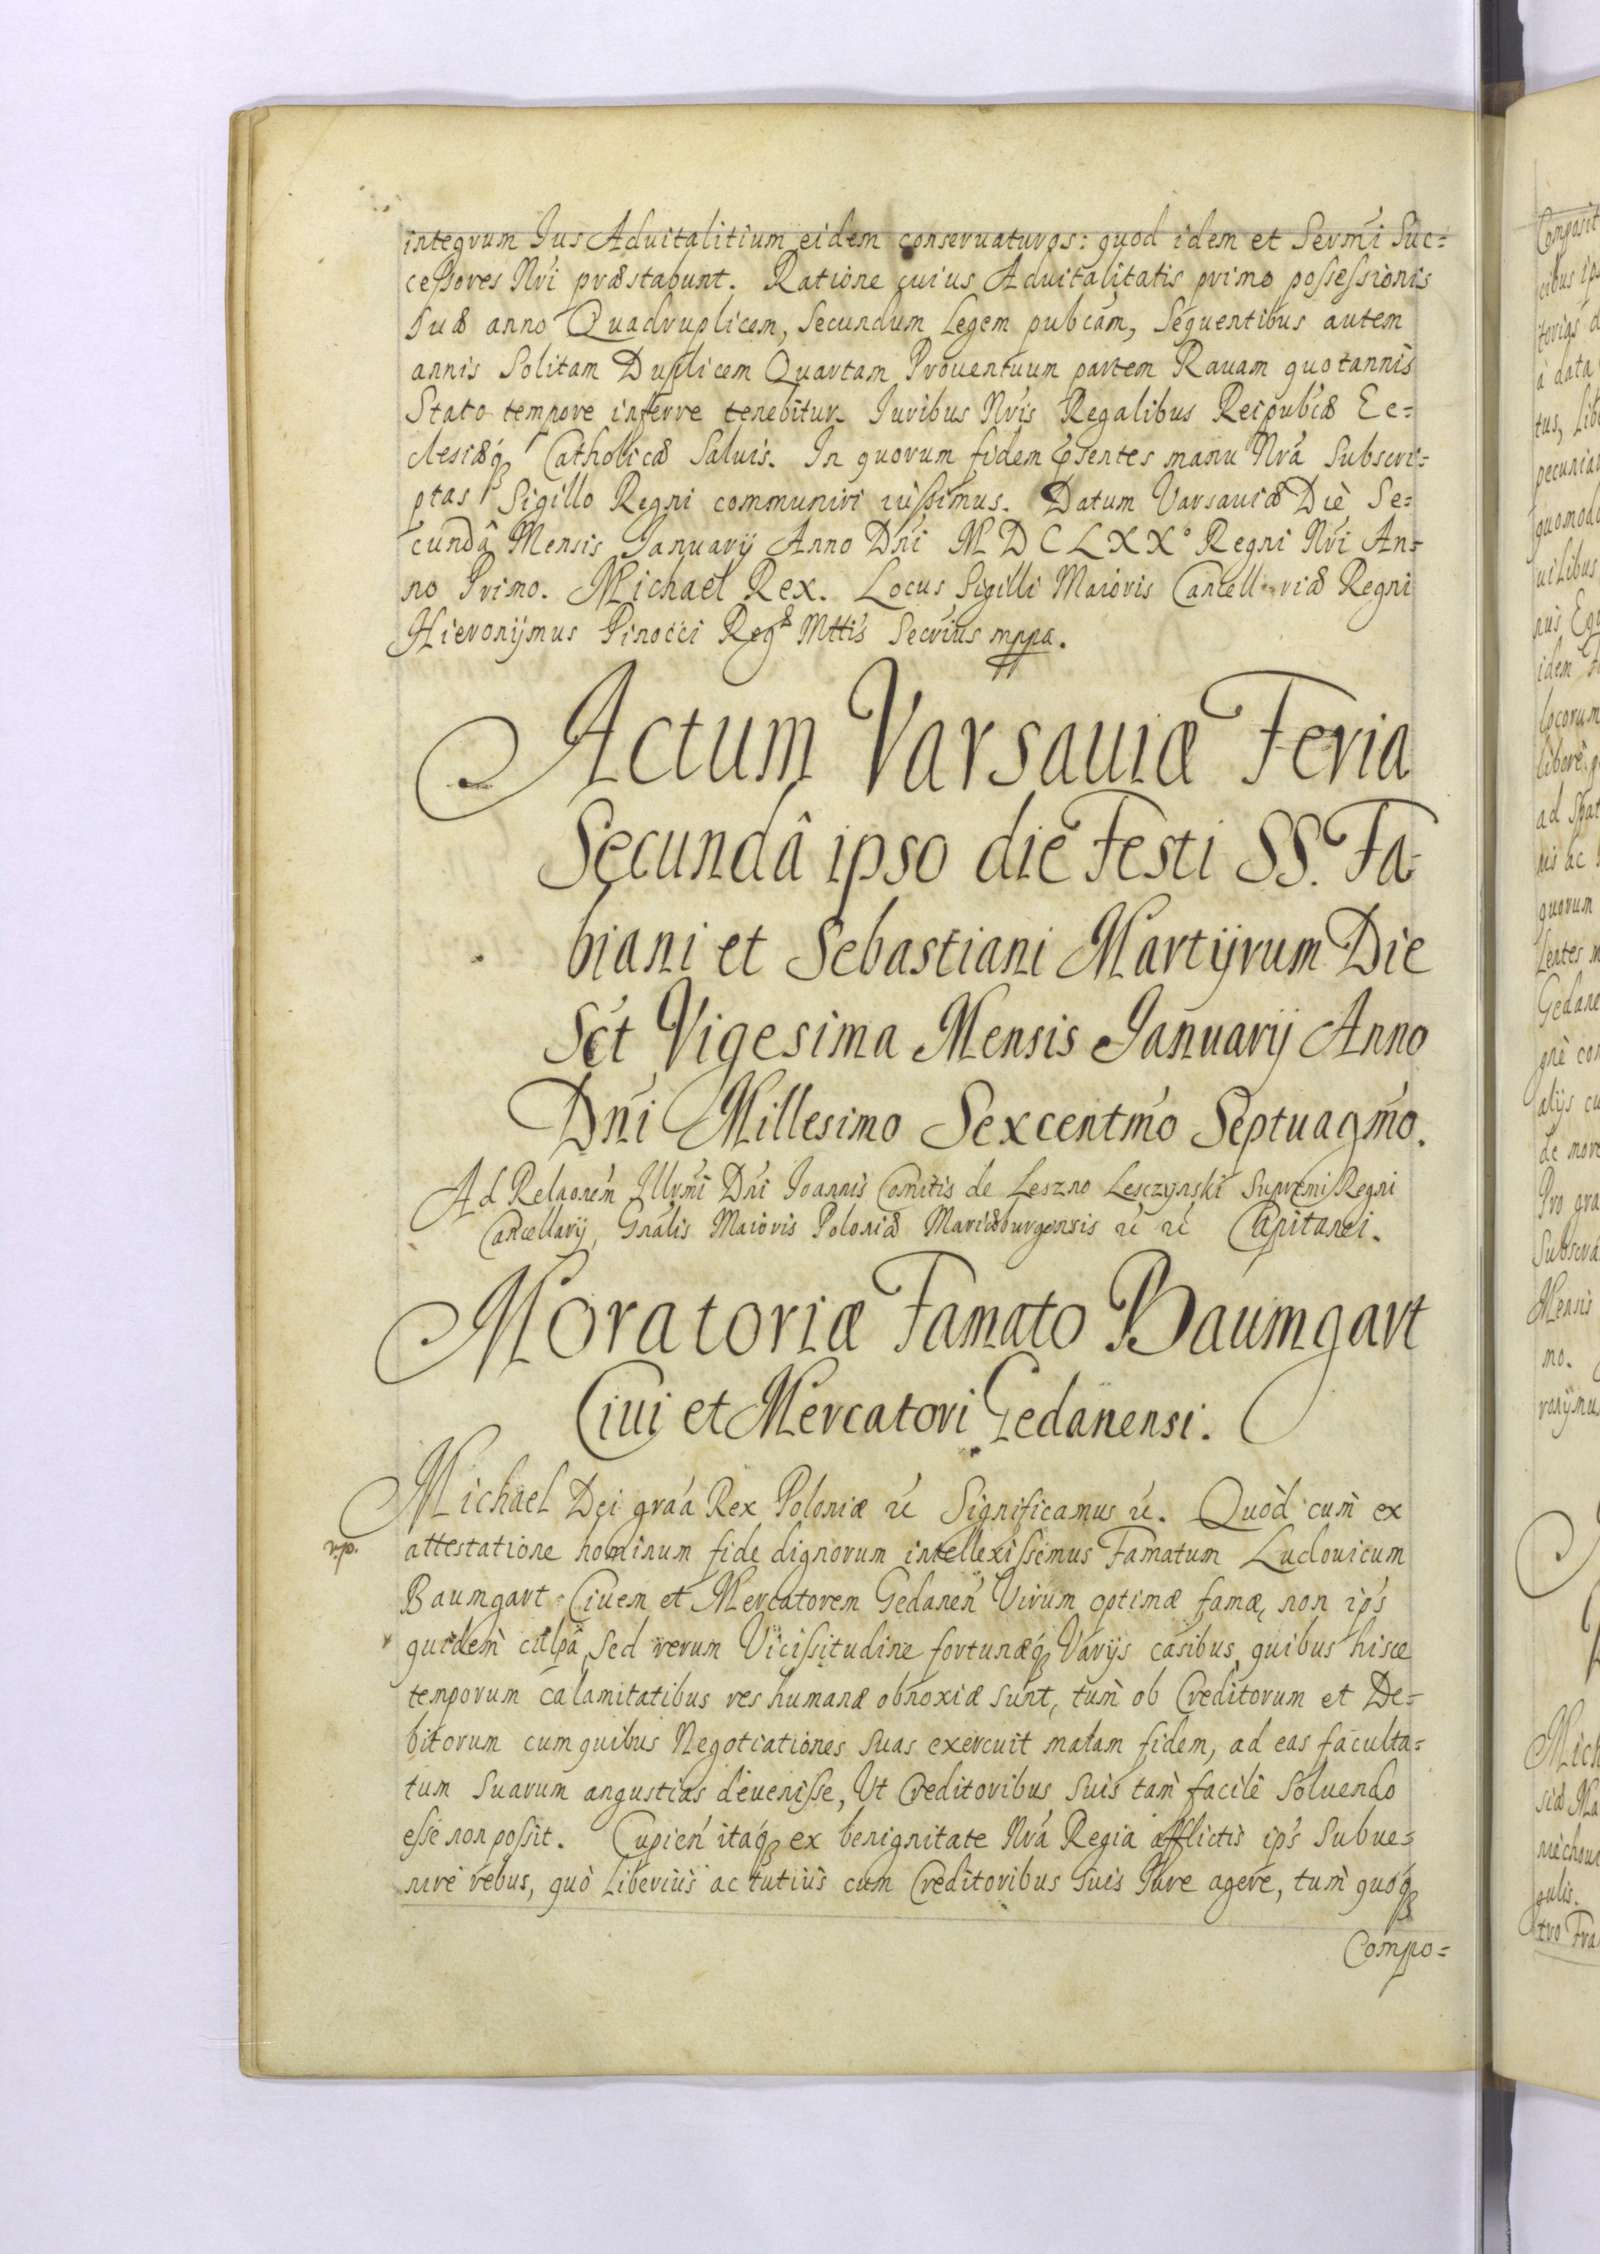 integrum Ius Aduitalitium eidem conseruaturos: quod idem et Sermi Suc=
ceſsores Nri præstabunt. Ratione cuius Aduitalitatis primo poſseſsionis
suæ anno Quadruplicem, Secundum Legem pubcam, Sequentibus autem
annis Solitam Duplicem Quartam Prouentuum partem Rauam quotannis
Stato tempore inferre tenebitur. Iuribus Nris Regalibus Reipubcæ Ec=
clesiæq Catholicæ Saluis. In quorum fidem pñtes manu Nrâ Subscri=
ptas Sigillo Regni communiri iuſsimus. Datum Varsauiæ Diè Se=
cundâ Mensis Ianuarij Anno Dni MDCLXX° Regni Nri An=
no Primo. Michael Rex. Locus Sigilli Maioris Cancellariæ Regni
Hieronijmus Pinocci Regæ Mttis Secrius mppa.
Actum Varsauiæ Feria
Secundâ ipso die Festi SS. Fa-
biani et Sebastiani Martijrum Die
Sct Vigesima Mensis Ianuarij Anno
Dni Millesimo Sexcentmo Septuagmo.
Ad Relaonem Illrmi Dni Ioannis Comitis de Leszno Lesczynski Supremi Regni
Cancellarij, Gnalis Maioris Poloniæ Mariæburgensis &c &c Capitanei.
Moratoriæ Famato Baumgart
Ciui et Mercatori Gedanensi.
Michael Dei graa Rex Poloniæ &c Significamus &c. Quòd cum ex
attestatione hominum fide dignorum intellexiſsemus Famatum Ludouicum
Baumgart Ciuem et Mercatorem Gedanen Virum optimæ famæ, non ips
quidem culpâ, sed rerum Viciſsitudine fortunæq Varijs casibus, quibus hisce
temporum calamitatibus res humanæ obnoxiæ sunt, tum ob Creditorum et De=
bitorum cum quibus Negotiationes suas exercuit malam fidem, ad eas faculta=
tum suarum angustias deueniſse, Ut Creditoribus suis tam facile soluendo
eſse non poſsit. Cupien itaq ex benignitate Nra Regia afflictis ips subue=
nire rebus, quò liberius ac tutius cum Creditoribus suis Iure agere, tum quoq
Compo=